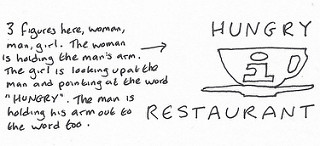 3 figures here, woman,
man, girl. The woman
is holding the man's arm.
The girl is looking up at the
man and pointing at the word
"HUNGRY". The man is
holding his arm out to
the word too.
HUNGRY
i
RESTAURANT